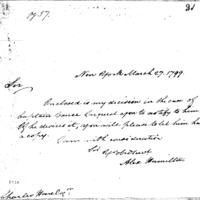 New York March 27. 1799.
Sir
Enclosed is my decision in the case of
Captain
upon to notify to him
If he desires it, you will please to let him have
a copy.
I am with consideration
Sir Yr Obedt Servt
Alex Hamilton
Charles